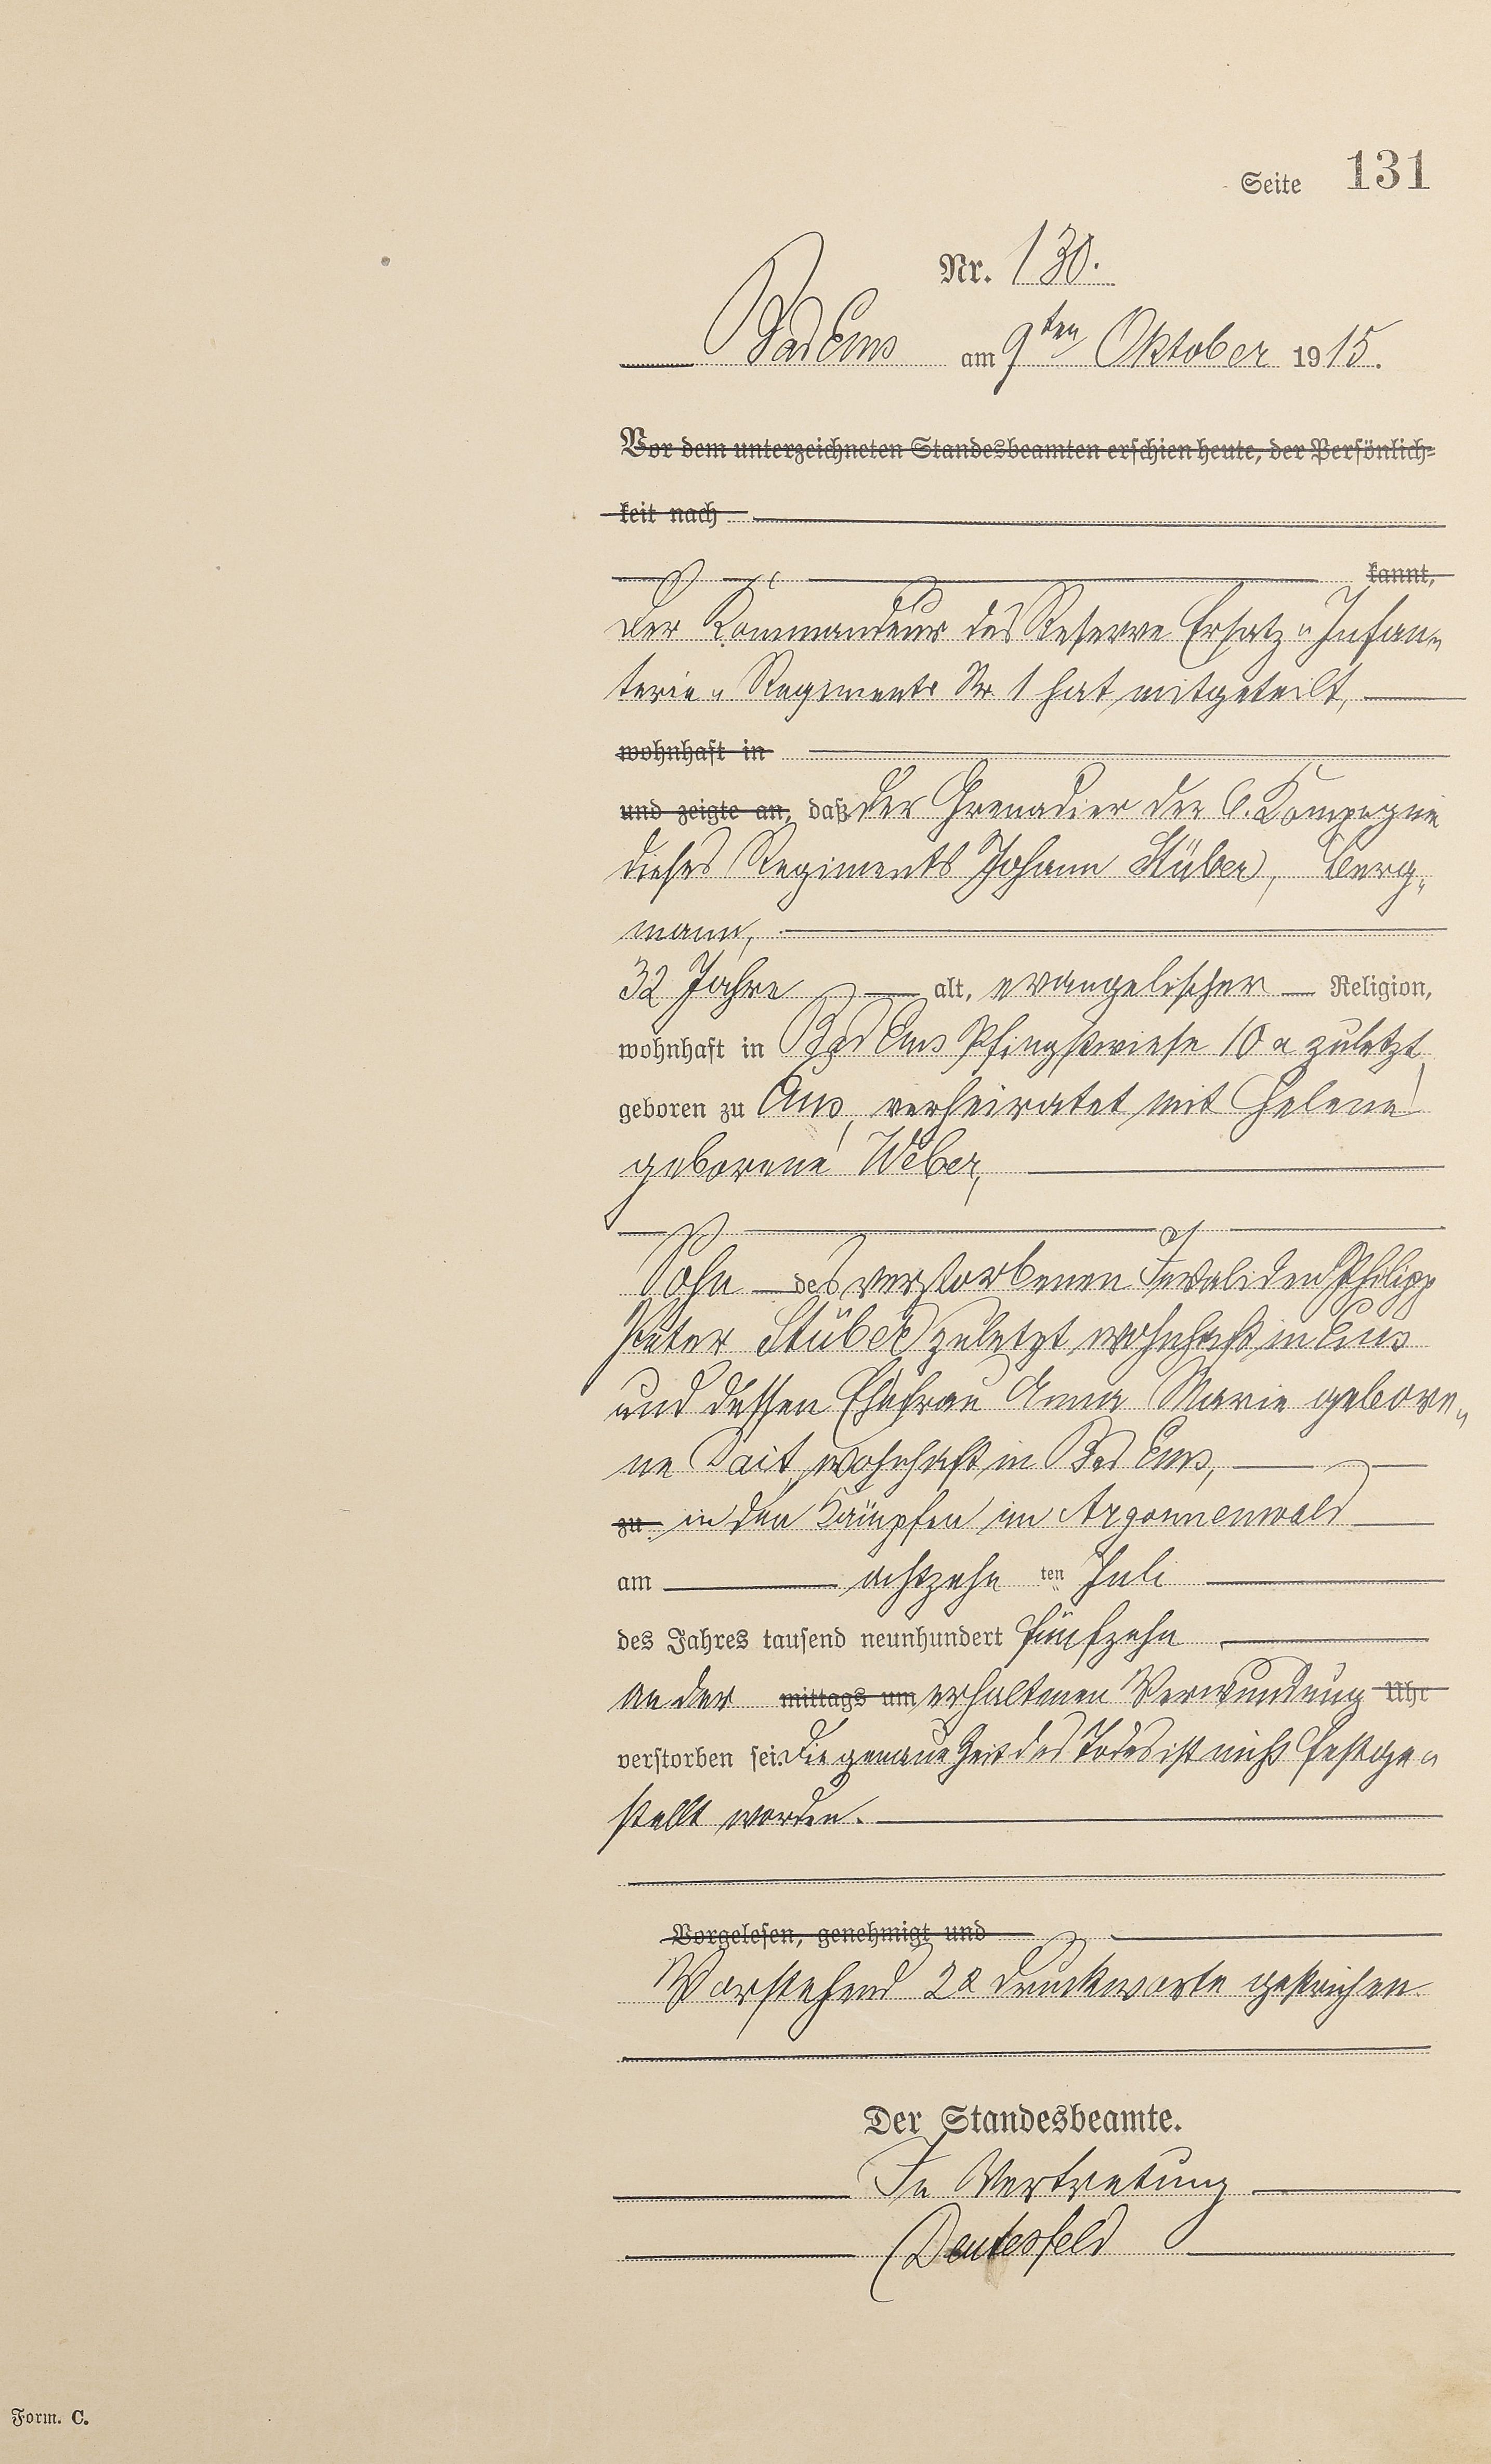 Seite 131
Nr. 130.
Bad Ems am 9ten Oktober 1915.
Vor dem unterzeichneten Standesbeamten erschien heute, der Persönlich-
keit nach
kannt,
Der Kommandeur des Reserve Ersatz-Infan-
terie-Regiments Nr 1 hat mitgeteilt,
wohnhaft in
und zeigte an, daß der Grenadier der Kompagnie
dieses Regiments Johann Stüber, Berg-
mann,
32 Jahre alt, evangelischer Religion,
wohnhaft in Bad Ems Pfingstwiese 10a zuletzt,
geboren zu Ems, verheiratet mit Helene
geborene Weber,
Sohn des verstorbenen Invaliden Philipp
Peter Stüber zuletzt wohnhaft in Ems
und dessen Ehefrau Anna Marie gebore-
ne wohnhaft in Bad Ems,
zu in den Kämpfen im Argonnenwald
am achtzehn ten Juli
des Jahres tausend neunhundert fünfzehn
an der mittags um erhaltenen Verwundung Uhr
verstorben sei. Die genaue Zeit des Todes ist nicht festge-
stellt worden.
Vorgelesen, genehmigt und
Vorstehend 22 Druckworte gestrichen.
Der Standesbeamte.
In Vertretung
Form. C.